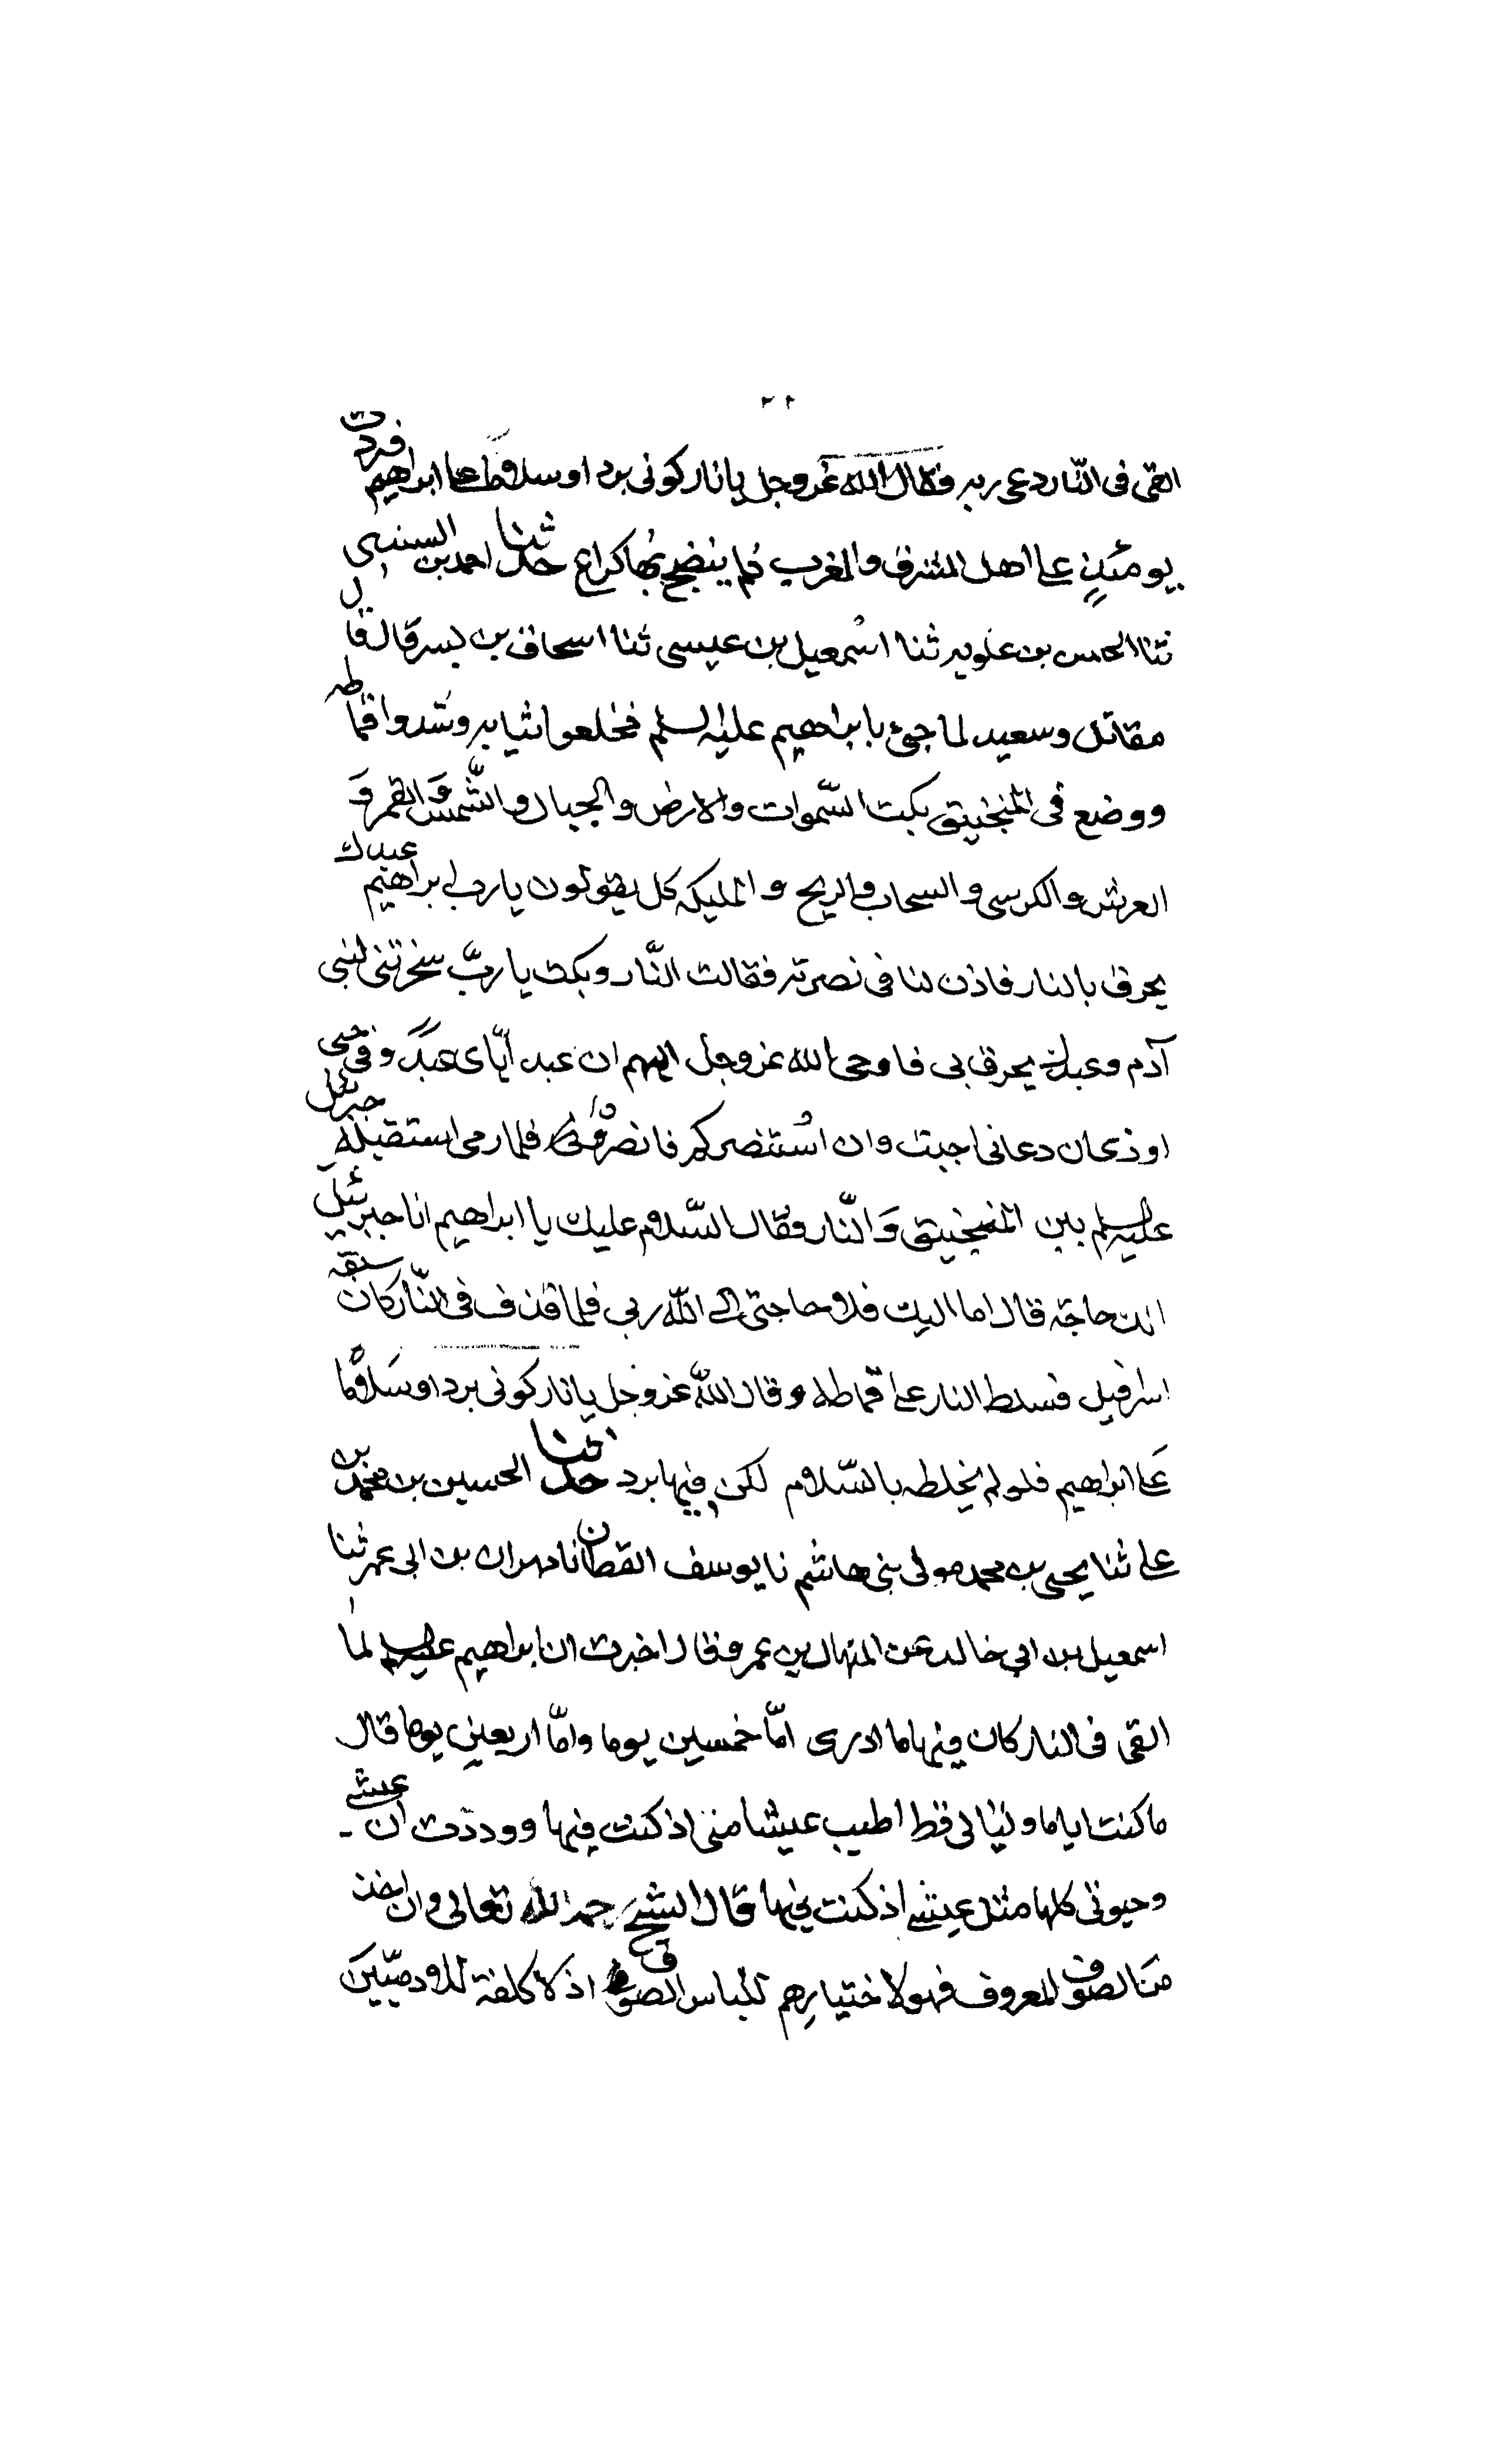 ٢٢
القى فى النّار دعى ربه فقال الله عز وجل يا نار كونى بردا وسلاما على ابراهيم فبردت
يومئذٍ على اهل المشرق والمغرب فلم ينضج بها كراع حدثنا احمد بن السندى
ثنا الحسن بن علويه ثنا اسمعيل بن عيسى ثنا اسحاق بن بسر قال قال
مقاتل وسعيد لما جئ بابراهيم عليه السلم فخلعوا ثيابه وشدوا قماطه
ووضع فى المنجنيق بكت السّموات والارض والجبال والشّمس وَالقمر وَ
العرش والكرسى والسحاب والريح والمليكه كل يقولون يا رب ابراهيم عبدك
يحرق بالنار فاذن لنا فى نصرته فقالت النّار وبكت يا ربّ سخرتنى لبنى
آدم وعبدك يحرق بى فاوحى الله عز وجل اليهم ان عبدى ايّاى عبد وفى جنبى
اوذى ان دعانى اجبت وان استنصركم فانصروه فلما رمى استقبله جبرئيل
عليه السلم بين المنجنيق وَالنّار فقال السّلام عليك يا ابراهيم انا جبرئيل
الك حاجة قال اما اليك فلا حاجتى الى الله ربى فلما قذف فى النّار كان سبقه
اسرافيل فسلط النار على قماطه وقال الله عز وجل يا نار كونى بردا وسَلامًا
عَلى ابراهيم فلو لم يخلطه بالسّلام لكن فيها برد حدثنا الحسين بن محمد بن
على ثنا يحيى بن محمد مولى بنى هاشم نا يوسف القطان نا مهران بن ابى عمر ثنا
اسمعيل بن ابى خالد عن المنهال بن عمرو قال اخبرت ان ابراهيم عليه السلم لما
القى فى النار كان فيها ما ادرى امّا خمسين يوما وامّا اربعين يوما قال
ما كنت اياما وليالى قط اطيب عيشا منى اذ كنت فيها ووددت ان عيشى
وحيوتى كلها مثل عيشى اذ كنت فيها قال الشيخ رحمه الله تعالى وان اخذ
من الصوف المعروف فهو لاختيارهم للباس الصوف اذ لا كلفة للاودميّين